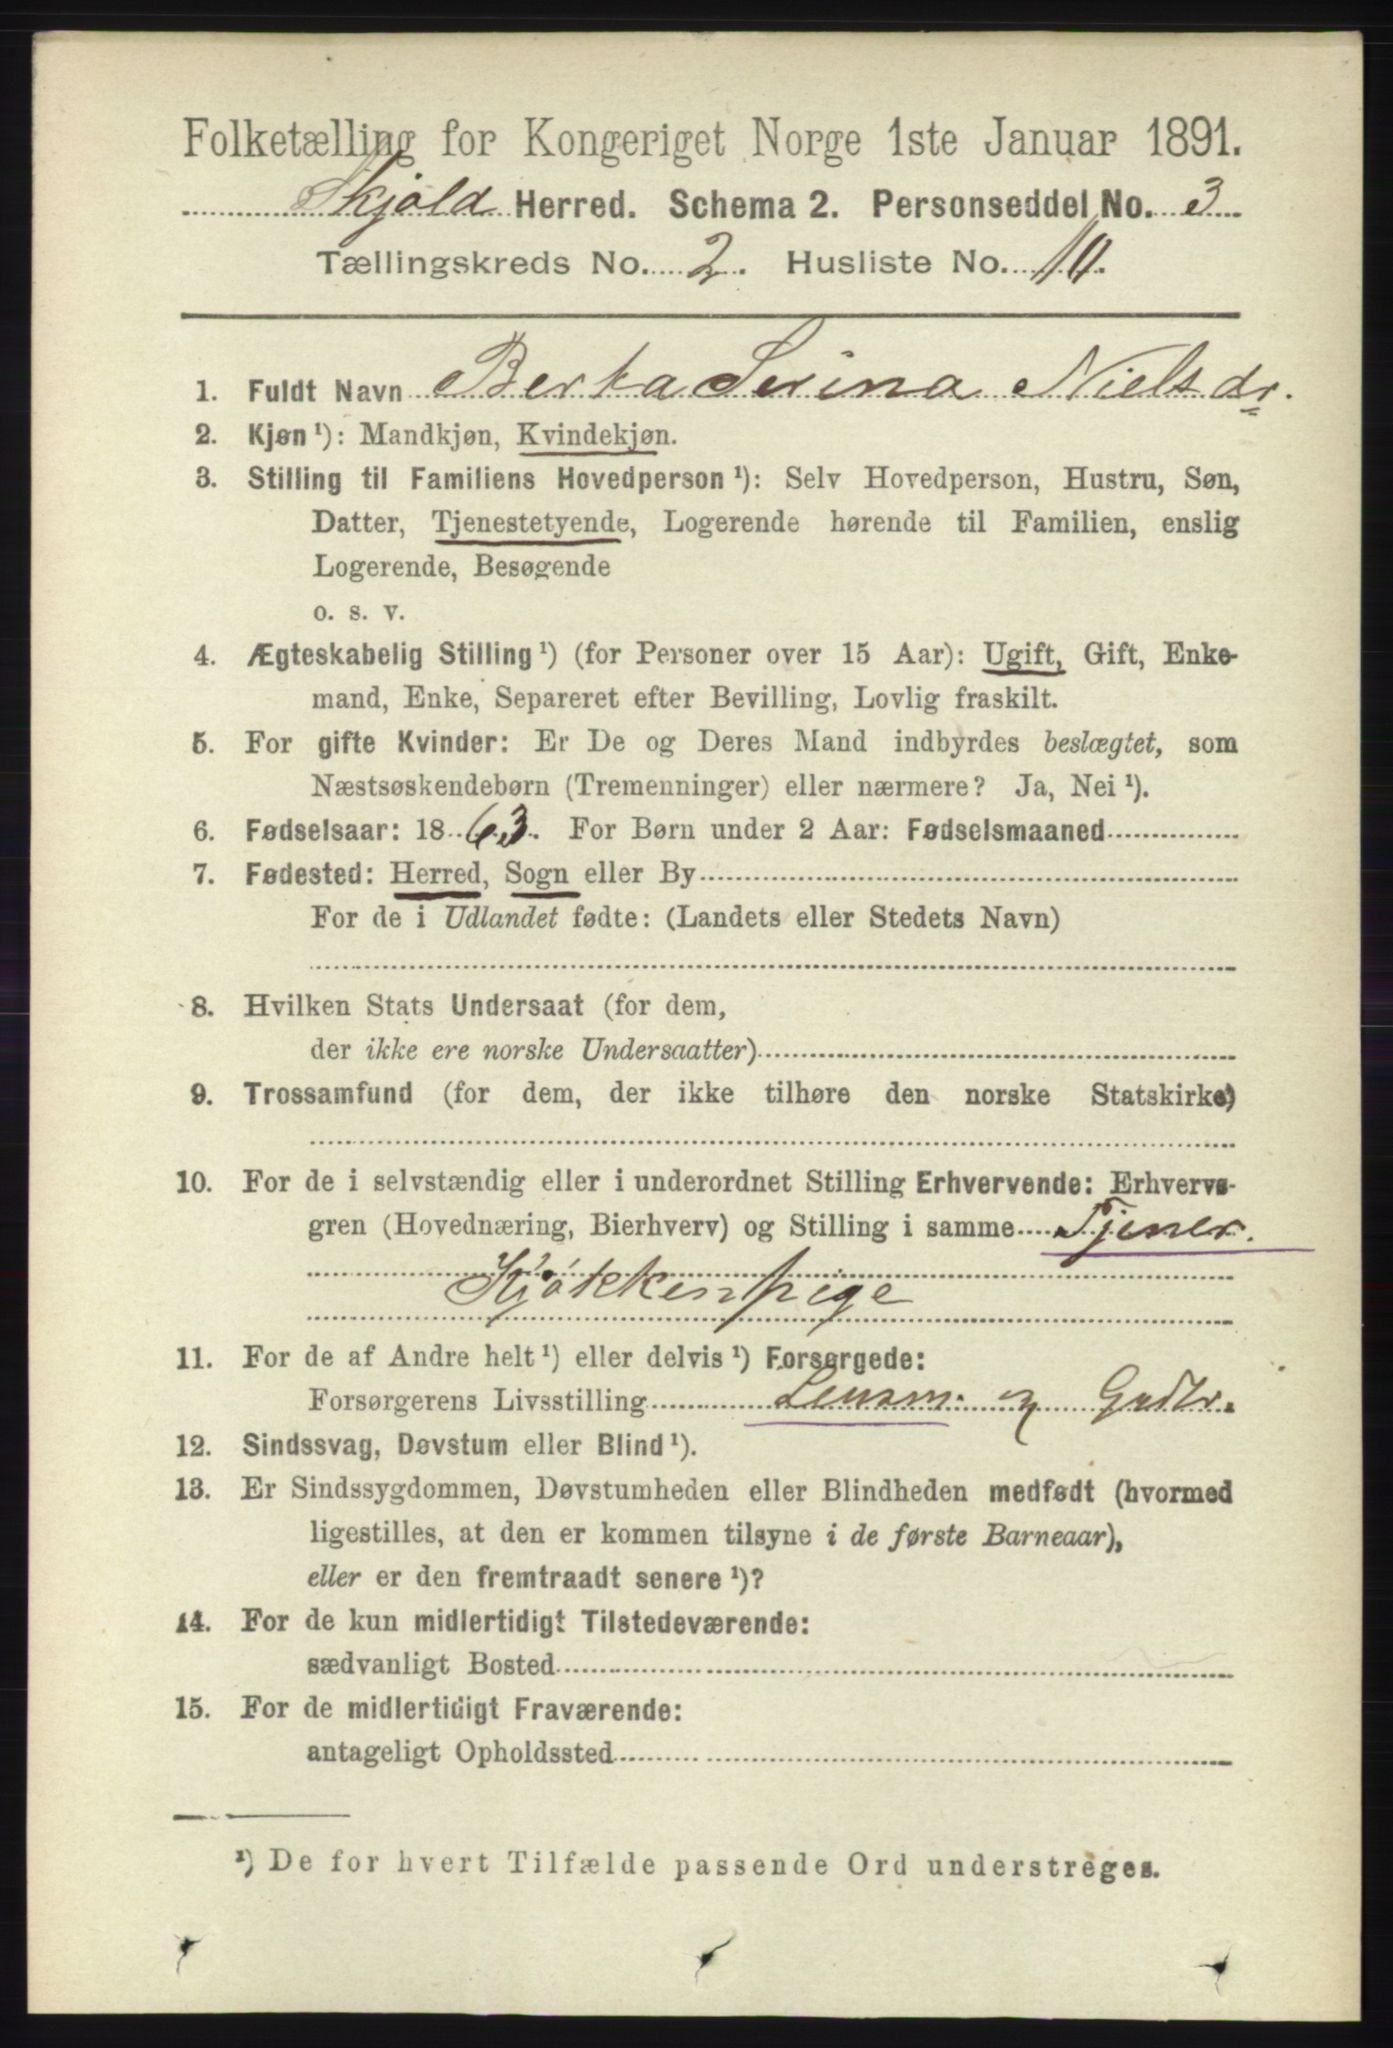 Folketælling for Kongeriget Norge 1ste Januar 1891.
Skjold Herred. Schema 2. Personseddel No. 3
Tællingskreds No. 2. Husliste No. 10.
1. Fuldt Navn Berta Serina Nielsdr.
2. Kjøn ¹): Mandkjøn, Kvindekjøn.
3. Stilling til Familiens Hovedperson ¹): Selv Hovedperson, Hustru, Søn,
Datter, Tjenestetyende, Logerende hørende til Familien, enslig
Logerende, Besøgende
o. s. v.
4. Ægteskabelig Stilling ¹) (for Personer over 15 Aar): Ugift, Gift, Enke-
mand, Enke, Separeret efter Bevilling, Lovlig fraskilt.
5. For gifte Kvinder: Er De og Deres Mand indbyrdes beslægtet, som
Næstsøskendebørn (Tremenninger) eller nærmere? Ja, Nei ¹).
6. Fødselsaar: 1863. For Børn under 2 Aar: Fødselsmaaned
7. Fødested: Herred, Sogn eller By
For de i Udlandet fødte: (Landets eller Stedets Navn)
8. Hvilken Stats Undersaat (for dem,
der ikke ere norske Undersaatter)
9. Trossamfund (for dem, der ikke tilhøre den norske Statskirke)
10. For de i selvstændig eller i underordnet Stilling Erhvervende: Erhvervs-
gren (Hovednæring, Bierhverv) og Stilling i samme Tjener.
Kjøkkenpige
11. For de af Andre helt ¹) eller delvis ¹) Forsørgede:
Forsørgerens Livsstilling Lensm. og Gadbr.
12. Sindssvag, Døvstum eller Blind ¹).
13. Er Sindssygdommen, Døvstumheden eller Blindheden medfødt (hvormed
ligestilles, at den er kommen tilsyne i de første Barneaar),
eller er den fremtraadt senere ¹)?
14. For de kun midlertidigt Tilstedeværende:
sædvanligt Bosted
15. For de midlertidigt Fraværende:
antageligt Opholdssted
¹) De for hvert Tilfælde passende Ord understreges.